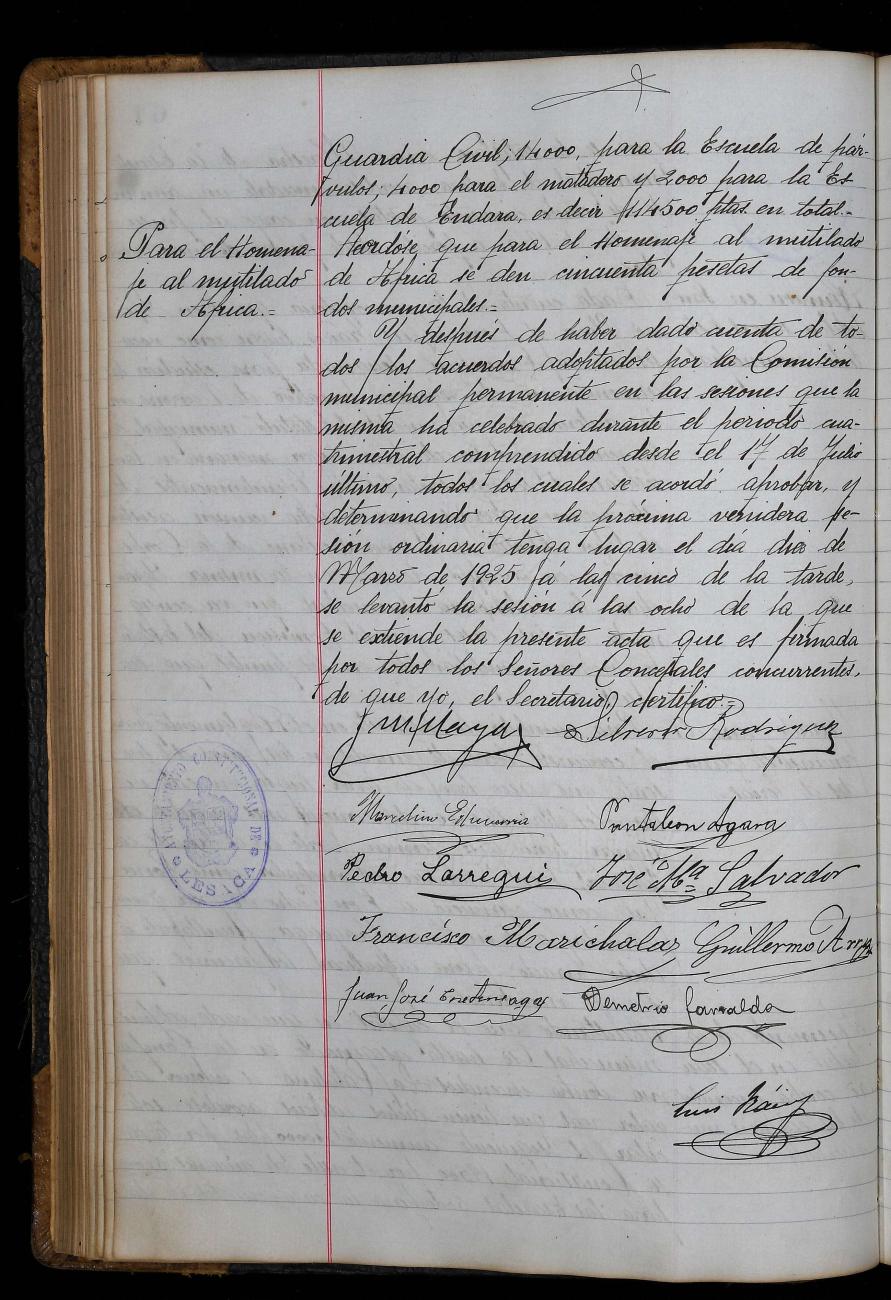 Guardia Civil; 14000, para la Escuela de pár-
vulos; 4000 para el matadero y 2000 para la Es-
cuela de Endara, es decir 114500 ptas. en total.=
Para el Homena-
je al mutilado
de Africa.=
Acordóse, que para el Homenaje al mutilado
de Africa se den cincuenta pesetas de fon-
dos municipales.=
Y después de haber dado cuenta de to-
dos los acuerdos adoptados por la Comisión
municipal permanente en las sesiones que la
misma ha celebrado durante el periodo cua-
trimestral comprendido desde el 17 de Julio
último, todos los cuales se acordó aprobar, y
determinando que la próxima venidera se-
sión ordinaria tenga lugar el día diez de
Marzo de 1925 á las cinco de la tarde,
se levantó la sesión á las ocho de la que
se extiende la presente acta que es firmada
por todos los Señores Concejales concurrentes,
de que yo, el Secretario, certifico.=
J M Maya Silverio Rodríguez
Marcelino Echeverria Pantaleon Agara
Pedro Larregui José Mª Salvador
Francisco Marichalar Guillermo
Juan José Demetrio Garralda
Luis
AYUNTAMIENTO CONSTITUCIONAL DE
LESACA